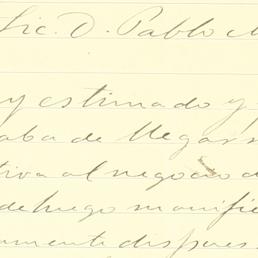 Lic. D. Pablo M
y estimado y
aba de llegar m
tiva al negocio d
de luego manifie
amente dispues